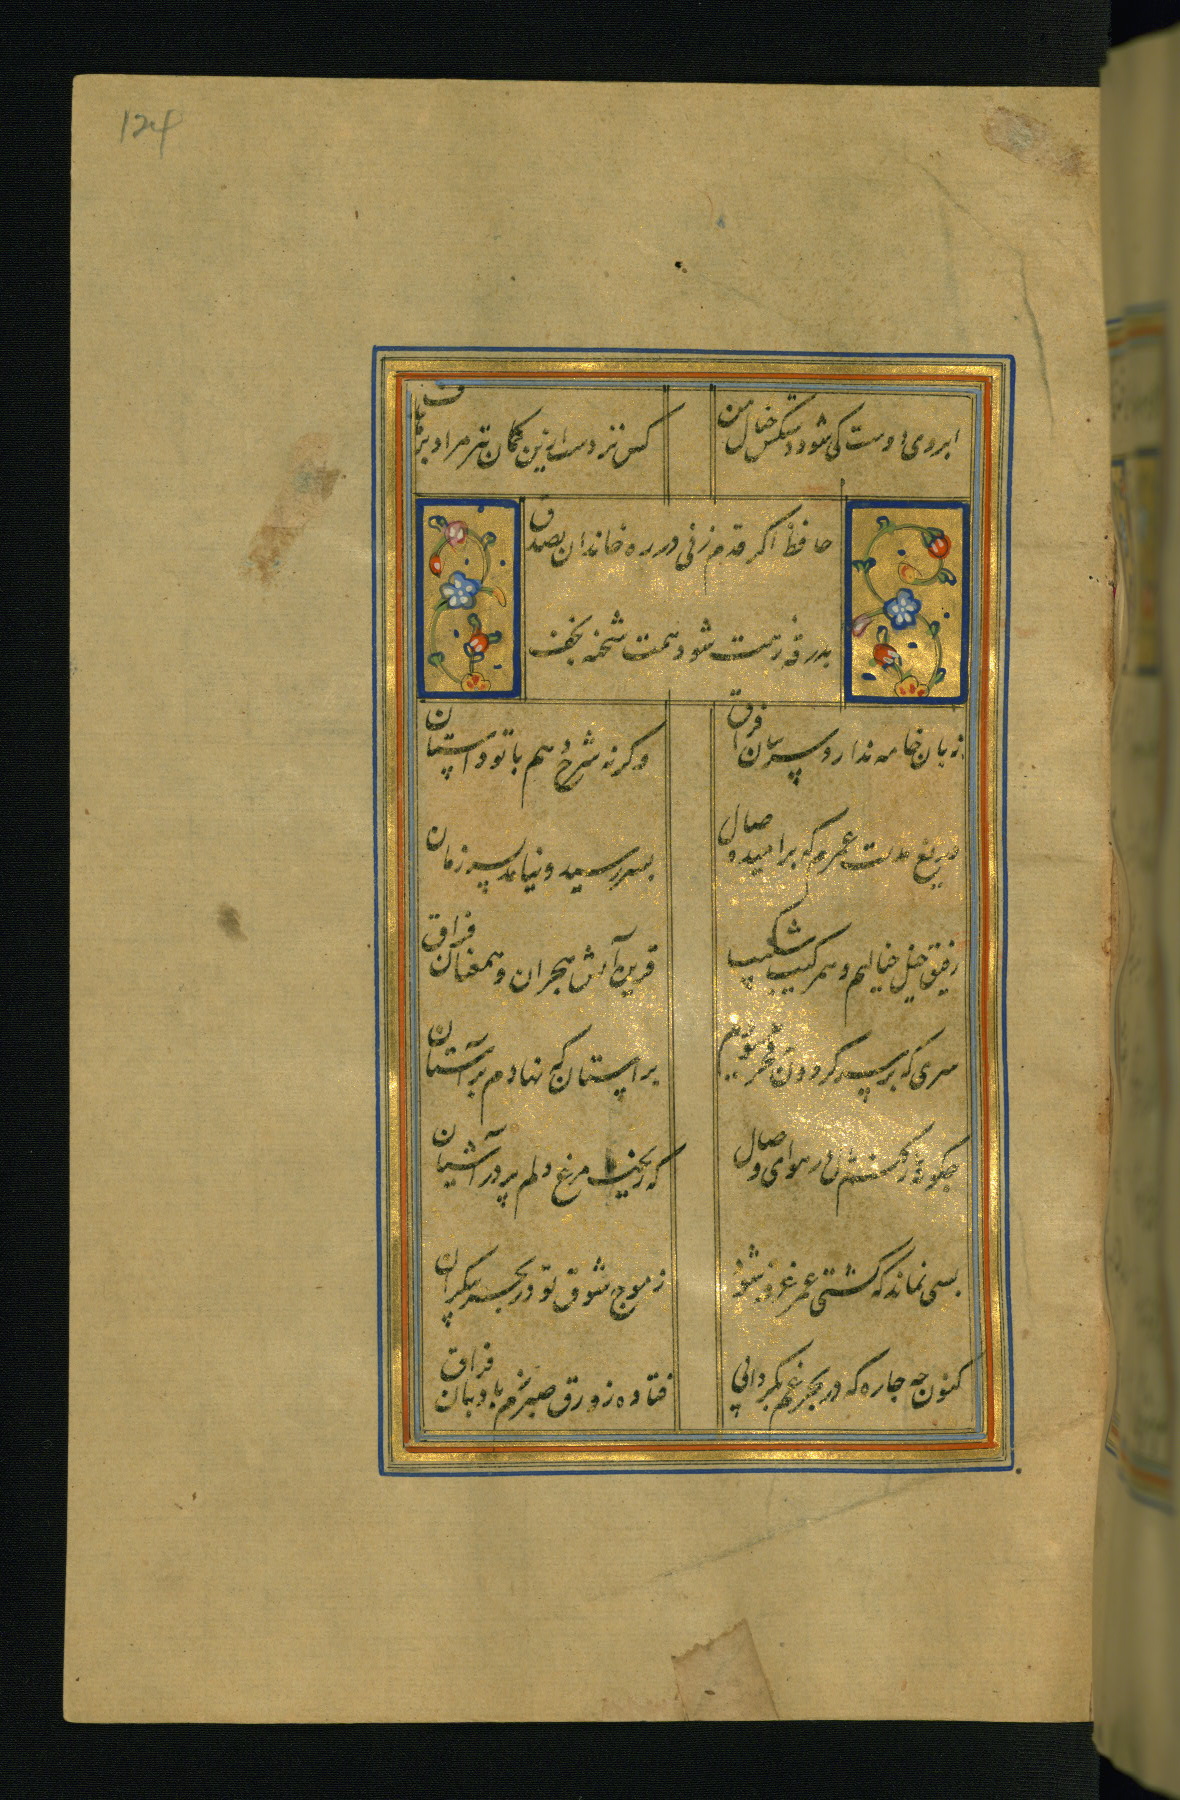 124
ابروی دوست کی شود دستکش خیال من
کس نزدست ازین کمان تیر مراد بر هدف
حافظ اگر قدم زنی در ره خاندان بصدق
بدرقه رهت شود همت شحنه نجف
زبان خامه ندارد سر بیان فراق
وگرنه شرح دهم با تو داستان
دریغ مدت عمرم که بر امید وصال
بسر رسید و نیامد بسر زمان
رفیق خیل خیالیم و همرکیب شکیب
قرین آتش هجران و همعنان فراق
سری که بر سر گردون بفخر می‌سودم
بر آستان که نهادم بر آستان
چگونه باز کنم بال در هوای وصال
که ریخت مرغ دلم پر در آشیان
بسی نماند که کشتی عمر غرقه شود
ز موج شوق تو در بحر بیکران
کنون چه چاره که در بحر غم بگردابی
فتاده زورق صبرم ز بادبان فراق